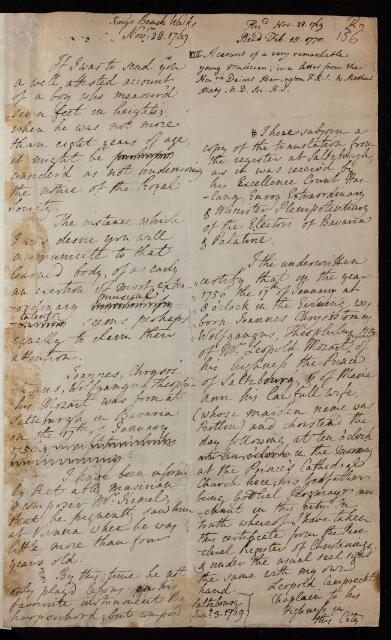 King's Bench Walks
Nov. 28. 1769
Rec'd Nov. 28. 1769
Read Feb. 15. 1770.
VIII. Account of a very remarkable
young musician, in a letter from the
Hon. Daines Barrington F.R.S. to Mathew
Maty M.D. Sec. R.S.
If I was to send you
a well attested account
of a boy who measured
seven feet in height,
when he was not more
than eight years of age,
it might be
considered as not undeserving
the notice of the Royal
Society.
The instance which
I now desire you will
communicate to that
learned body, of as early
an exertion of most extra-
ordinary musical
talents seems perhaps
equally to claim their
attention.
Joannes, Chrysos-
tomus, Wolfgangus Theophi-
lus Mozart was born at
Saltzbourg in Bavaria
on the 17th of January
1756
I have been informed
by that able musician
& composer Mr.
that he frequently saw him
at Vienna when he was
little more than four
years old.
By this time he not
only played lessons on his
favourite instrument the
harpsichord, but composed
# I here subjoin a
copy of the translation from
the register at Saltzbourg,
as it was procured by
his Excellence Count Has-
lang, Envoy Extraordinary
& Minister Plenipotentiary
of the Electors of Bavaria
& Palatine.
I the underwritten
certify that in the year
1756 the 17th of January at
8 o'clock in the Evening, was
born Joannes Chrysostomus
Wolfgangus, Theophilus
of Mr. Leopold Mozart of
his highness the Prince
of Saltzbourg, & of Maria
Ann his Lawfull wife,
(whose maiden name was
Pertlin) and christened the
day following at ten o'clock
in the morning
at the Princes Cathedral
Church here; his Godfather
being Gottlieb Pergmayr mer-
chant in this city. In
truth whereof I have taken
this certificate from the Paro-
chial Register of Christnings
& under the usual seal signed
the same with my own
hand.
Leopold Lamprecht
Chaplain to his
Highness in
this City.
Saltzbourg
Jan. 3. 1769